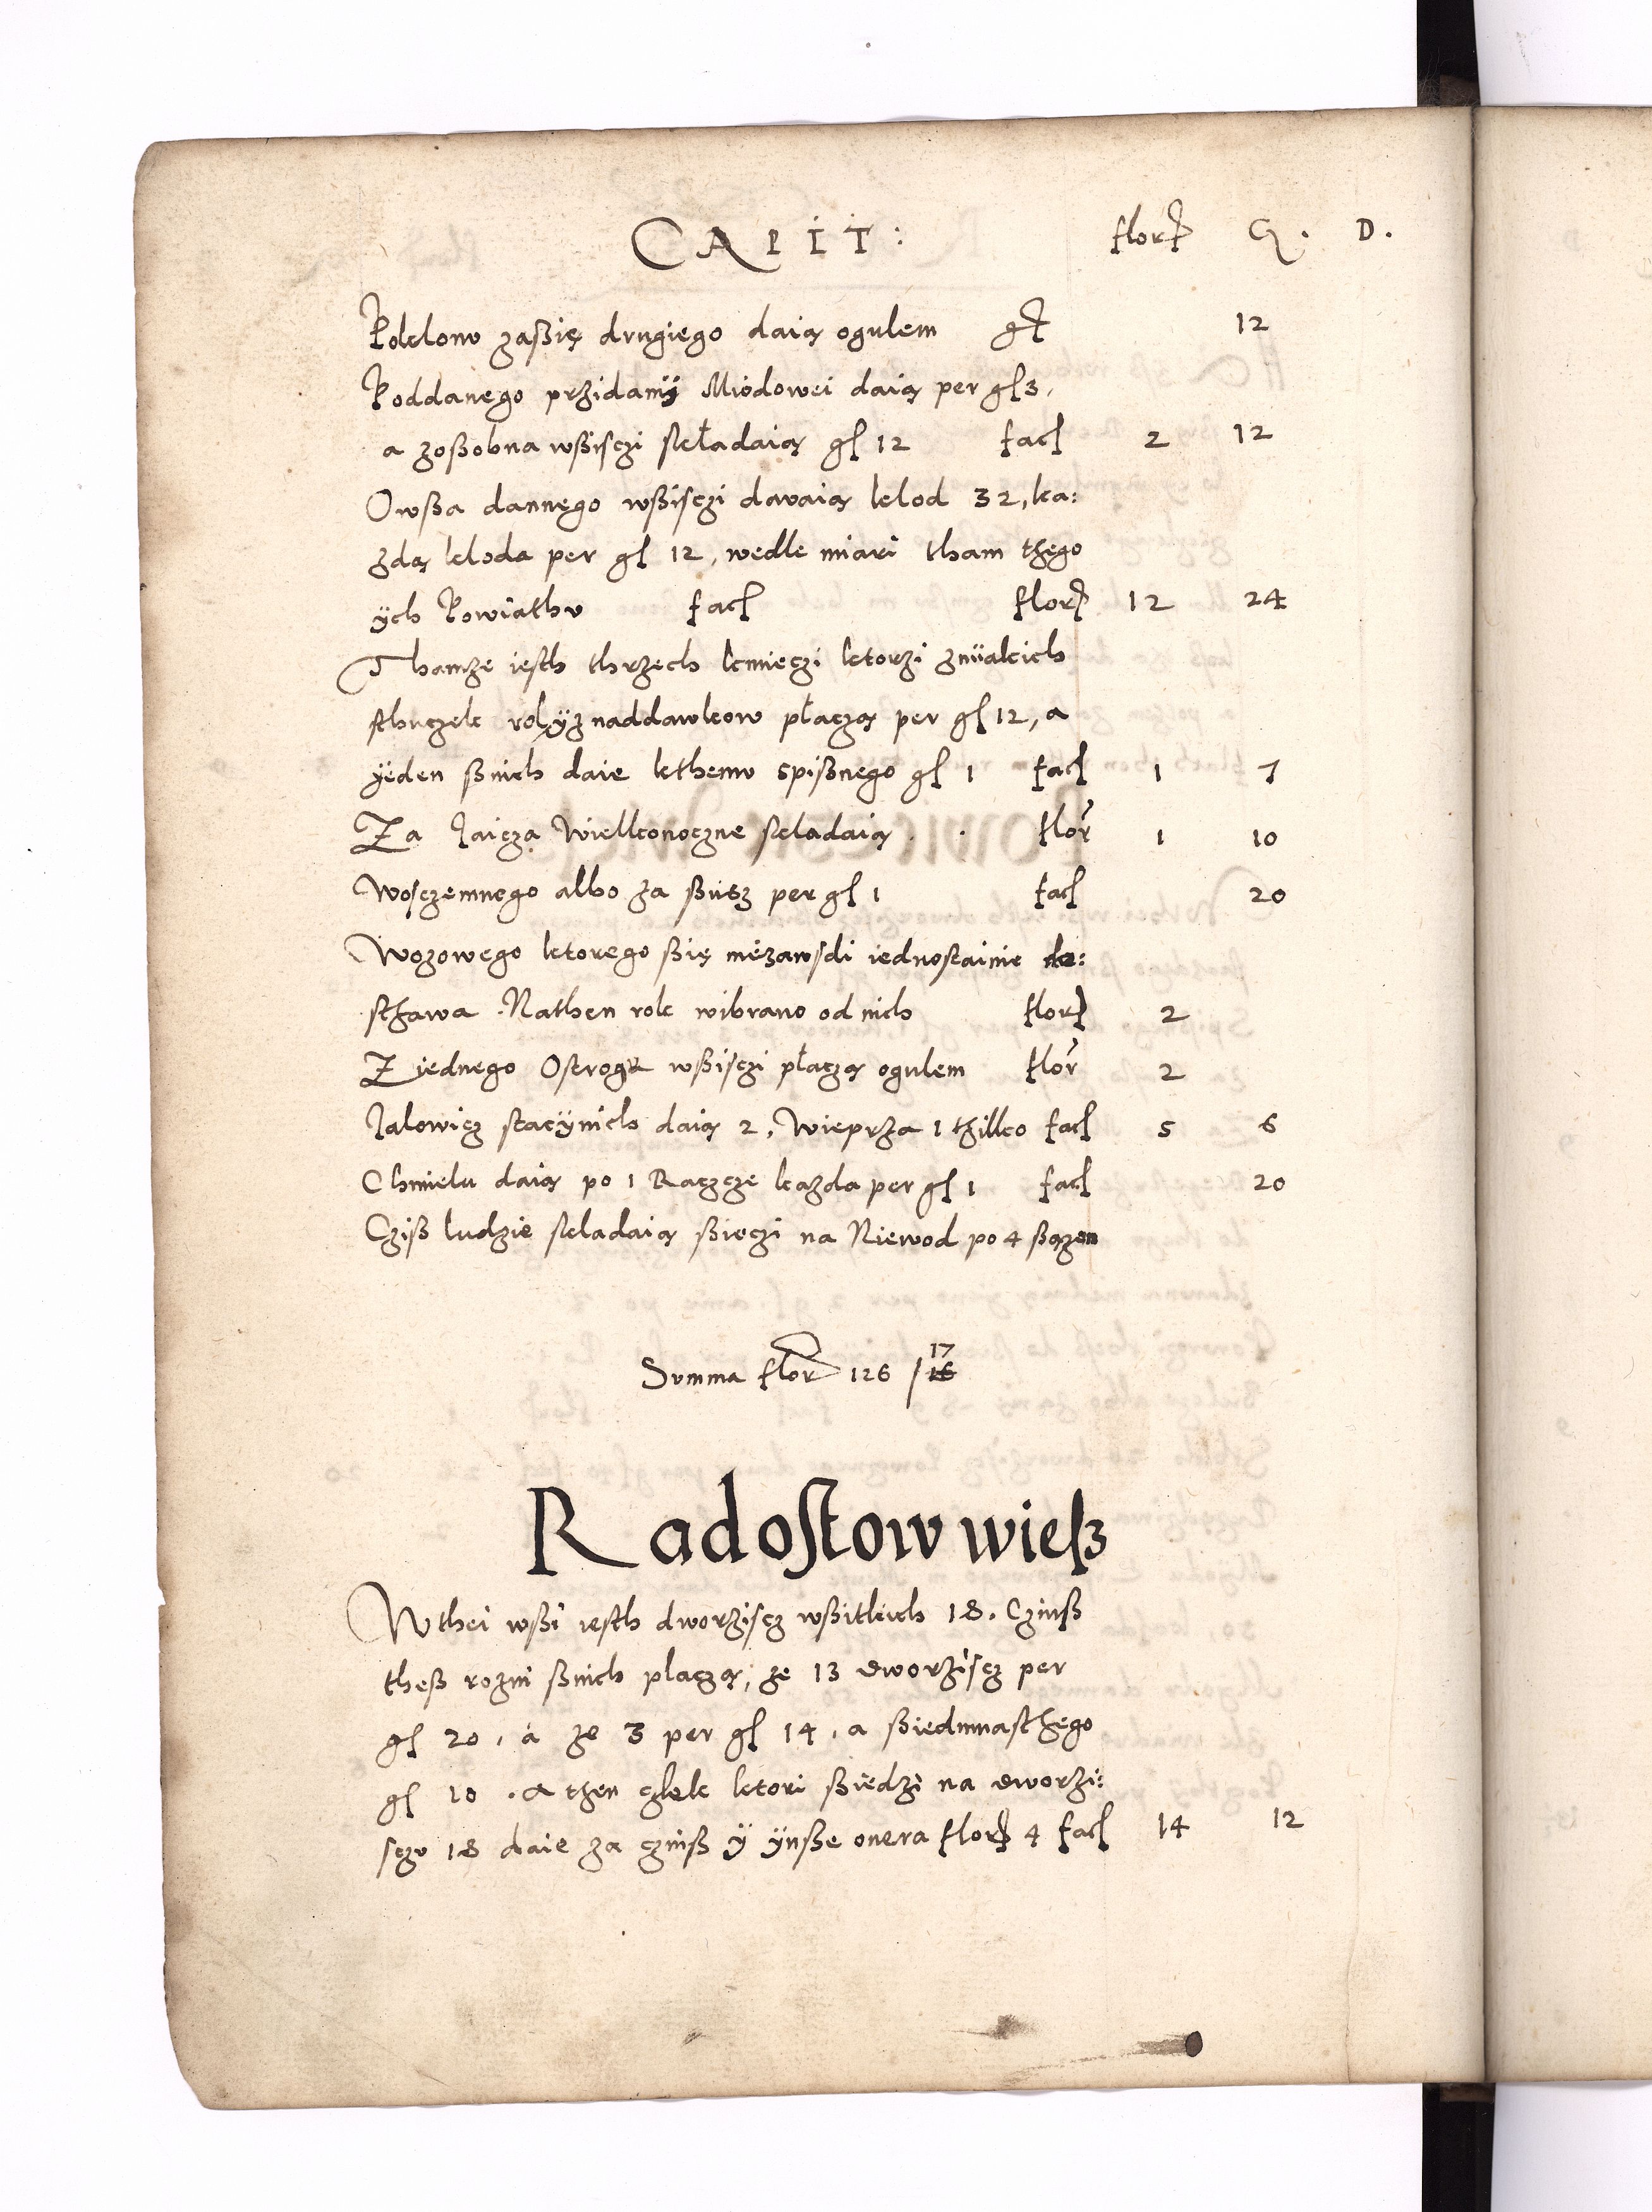 CAPIT: flor G. D.
Poklonu zaßię drugiego daią ogulem gr 12
Poddanego przidanÿ Miodowei daią per gſ 3,
a zoßobna wßisczi składaią gſ 12 facſ 2 12
Owßa dannego wßisczi dawaią klod 32, ka:
zdą kloda per gſ 12, wedle miari tham thego
ÿch Powiathu facſ flor 12 24
Thamze iesth thrzech kmieczi ktorzi
sthuczek rolÿ z naddawkow płaczą per gſ 12, a
ÿeden ßnich daie kthemu spißnego gſ 1 facſ 1 7
Za Jaicza Wielkonoczne skladaią flor 1 10
Wosczemnego albo za ßusz per gſ 1 facſ 20
Wozowego ktorego ßię niezawsdi iednostainie do:
sthawa. Nathen rok wibrano od nich flor 2
Z iednego Ostroga wßisczi płaczą ogulem flor 2
Jalowicz stacÿnich daią 2, Wieprza 1 thilko facſ 5 6
Chmielu daią po 1 Raczcze kazda per gſ 1 facſ 20
Cziß ludzie skladaią ßieczi na Niewod po 4 ßązen
Summa flor 126 / 17 16
Radostow wieß
Wthei wßi iesth dworziscz wßitkich 18. Czinß
theß rozni ßnich placzą, ze 13 dworziscz per
gſ 20, a ze 3 per gſ 14, a ßiedmnasthego
gſ 10. A then człek ktori ßiedzi na dworzi:
sczu 18 daie za czinß ÿ ÿnße onera flor 4 facſ 14 12